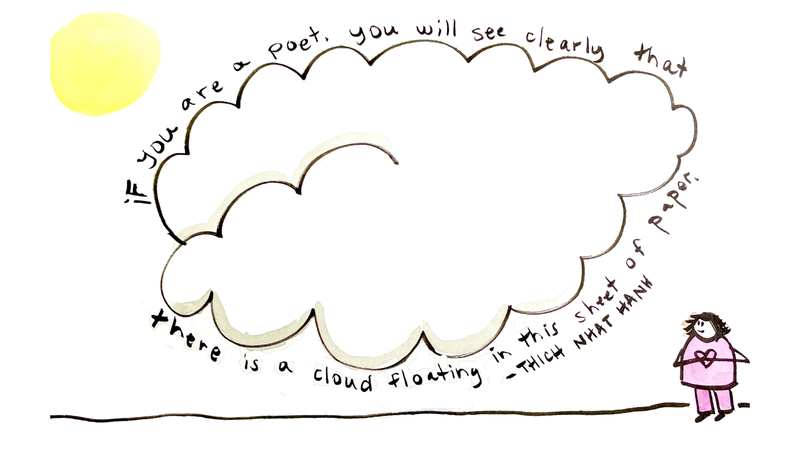 iF you are a poet, you will see clearly that
there is a cloud floating in this sheet of paper.
-THICH NHAT HANH